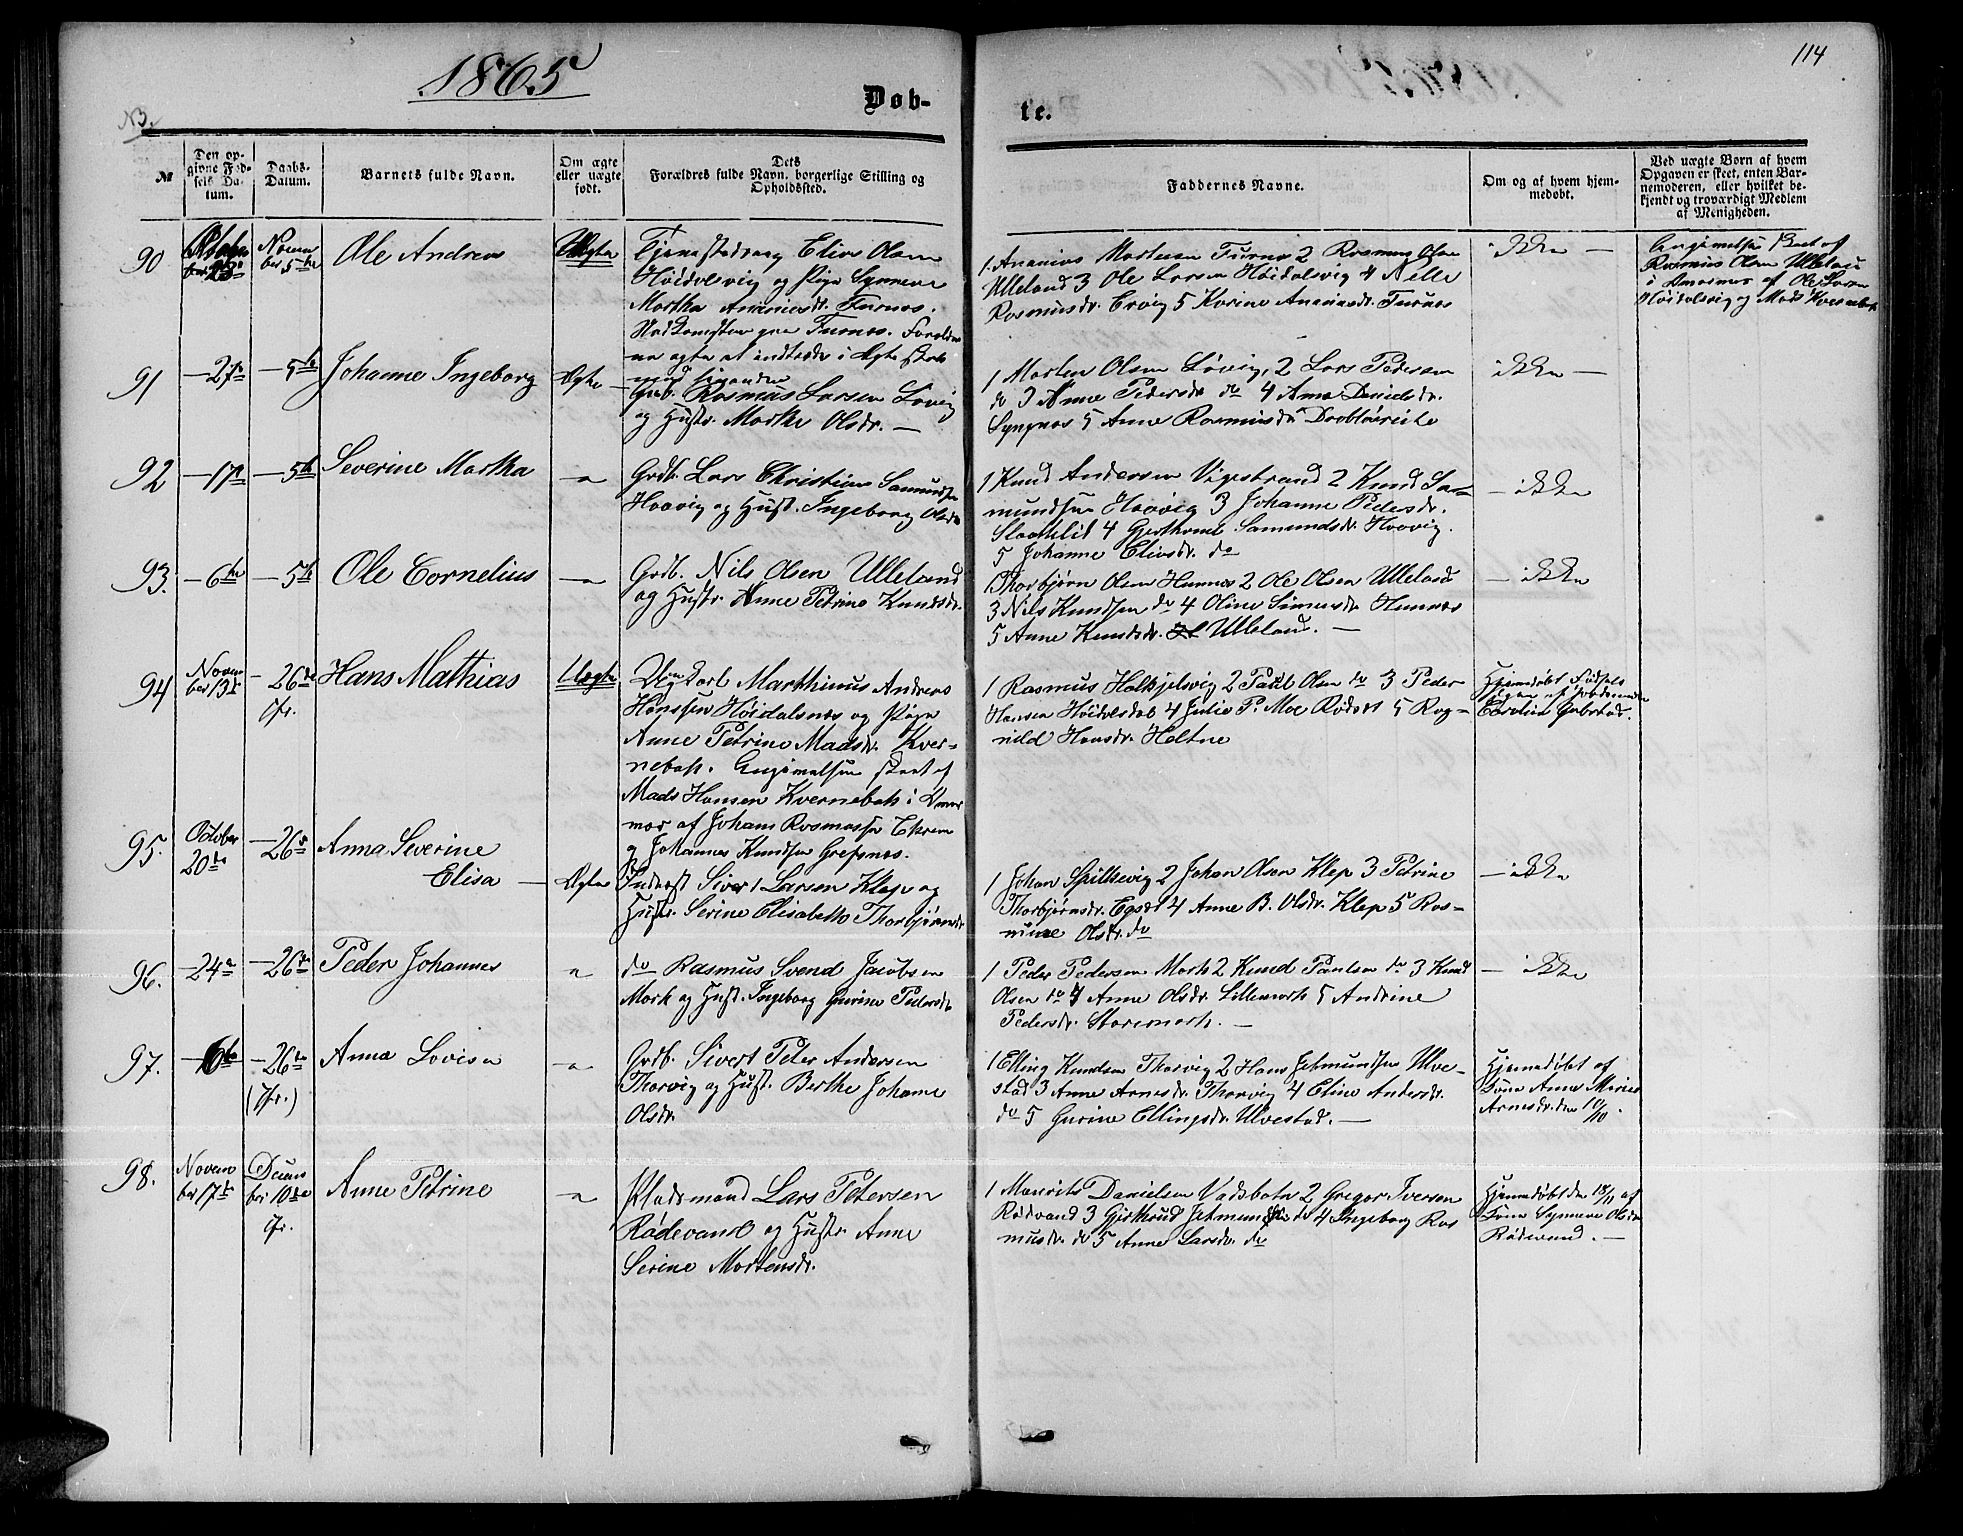 1865
114
Døb-
te.
N3.
№
Den op-
givne Fød-
sels Da-
tum.
Daabs-
Datum.
Barnets fulde Navn.
Om ægte
eller uægte
født.
Dets
Forældres fulde Navn, borgerlige Stilling og
Opholdssted.
Faddernes Navne.
Om og af hvem hjem-
medøbt.
Ved uægte Børn af hvem
Opgaven er skeet, enten Bar-
nemoderen, eller hvilket be-
kjendt og troværdigt Medlem
af Menigheden.
90
Novem
ber 5te
Ole Andreas
Uægte
Tjenestedreng Elias Olsen
Høidalsvig og Pige Synneve
Martha Ananiasdr. Furnes.
Furnes. Forældre
ne agte at indtræde i Ægteskab
med hinanden
1. Ananias Martesen Furnes 2 Rasmus Olsen
Ulleland 3 Ole Larsen Høidalsvig 4 Nille
Rasmusdr. Ervig 5 Karine Ananiasdr. Furnes
ikke —
Angivelsen skeet af
Rasmus Olsen Ulleland
i Nærvær af Ole Larsen
Høidalsvig og Mads Kvernebak
91
— 27de
— 5te
Johanne Ingeborg
Ægte —
Grdb. Rasmus Larsen Løvig
og Hustr. Marthe Olsdr. —
1 Morten Olsen Løvig, 2 Lars Pedersen
do 3 Anne Pedersdr do 4 Anna Danielsdr.
Syngnes 5 Anne Rasmusdr
ikke —
92
— 17de
— 5te
Severine Martha
— " —
Grdb. Lars Christian Samundsen
Haavig og Hust. Ingeborg Olsdr
1 Knud Andersen Vigestrand 2 Knud Sa-
mundsen Haavig 3 Johanne Pedersdr.
Slaatelid 4 Gjerthrud Samundsdr. Haavig.
5 Johanne Eliasdr. do
— ikke
93.
— 6te
— 5te
Ole Cornelius
— " —
Grdb. Nils Olsen Ulleland
og Hustr. Anne Petrine Knudsdr.
Thorbjørn Olsen Humnes 2 Ole Olsen Ulleland
3 Nils Knudsen do 4 Oline Simensdr. Humnes
5 Anne Knudsdr. Ulleland. —
— ikke
94
Novem
ber 13de
— 26de
Kr.
Hans Mathias
Uægte
Ungkarl Marthinus Andreas
Hanssen Høidalsnes og Pige
Anne Petrine Madsdr. Kver-
nebak. Angivelsen skeet af
Mads Hansen Kvernebak i Nær
vær af Johan Rasmussen Ekrem
og Johannes Knudsen Grefsnes.
1 Rasmus Halkjelsvig 2 Paul Olsen do 3 Peder
Hansen Høidalsdal 4 Julie P. Moe Rødset 5 Rag-
nild Hansdr. Heltne
Hjemmedøbt Fødsels
dagen af Jordemoder
Caroline Gabstad.
95.
October
20de
— 26de
Anna Severine
Elisa —
Ægte
Inderst Sivert Larsen Klep og
Hustr. Serine Elisabeth Thorbjørnsdr
1 Johan Spillevig 2 Johan Olsen Klep 3 Petrine
Thorbjørnsdr. Egset 4 Anne B. Olsdr. Klep 5 Ras-
mine Olsdr. do
— ikke
96.
— 24de
— 26de
Peder Johannes
"
do Rasmus Svend Jacobsen
Mork og Hust. Ingeborg Gurine Pedersdr
1 Peder Pedersen Mork 2 Knud Paulsen do 3 Knud
Olsen do 4 Anne Olsdr. Lillemork 5 Andrine
Pedersdr. Storemork. —
— ikke
97.
— 6te
— 26de
(Kr.)
Anna Lovisa
— " —
Grdb. Sivert Peter Andersen
Thorvig og Hust. Berthe Johanne
Olsdr.
1 Elling Knudsen Thorvig 2 Hans Jetmundsen Ulve-
stad 3 Anne Arnesdr. Thorvig 4 Eline Andersdr.
do 5 Gurine Ellingsdr. Ulvestad. —
Hjemmedøbt af
Kone Anne Marie
Arnesdr. den 10/10.
98.
Novem
ber 17de
Decem
ber 10de
Kr.
Anne Petrine
"
Pladsmand Lars Petersen
Rødevand og Hustr. Anne
Serine Mortensdr.
1 Mauritz Danielsen Vadsbotn 2 Gregor Iversen
Rødvand 3 Gjerthrud Jetmundsdr do 4 Ingeborg Ras
musdr. do 5 Anne Larsdr. do
Hjemmedøbt den 18/11 af
Kone Synneve Olsdr
Rødevand. —